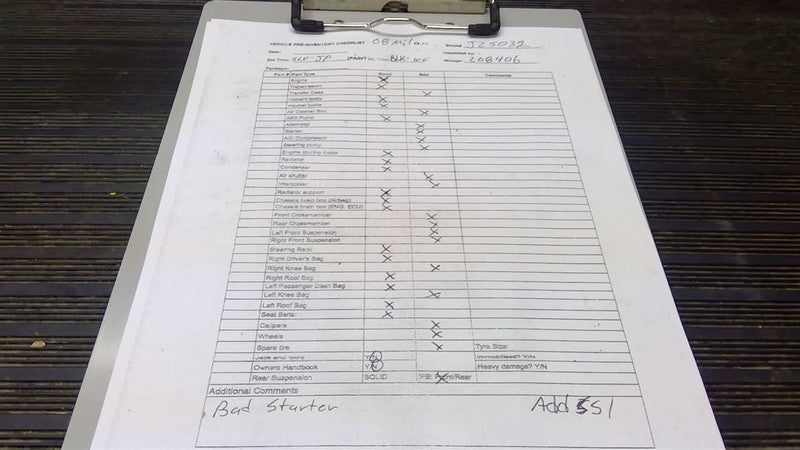 VEHICLE PRE-INVENTORY CHECKLIST 08 Mil Stock# J25032
Date: Inspected by:
Ext Trim: BLK Mileage: 208406
Package:
Part # Part Type Good Bad Comments
Engine X
Transmission X
Transfer Case X
Coolant bottle X
Washer bottle X
Air Cleaner Box X
ABS Pump X
Alternator X
Starter X
A/C Compressor X
Steering pump X
Engine cooling motor X
Radiator X
Condenser X
Air shutter X
Intercooler X
Radiator support X
Chassis brain box (Airbag) X
Chassis brain box (ENG. ECU) X
Front Crossmember X
Rear Crossmember X
Left Front Suspension X
Right Front Suspension X
Steering Rack X
Right Drivers Bag X
Right Knee Bag X
Right Roof Bag X
Left Passenger Dash Bag X
Left Knee Bag X
Left Roof Bag X
Seat Belts: X
Calipers X
Wheels X
Spare tire X Tyre Size:
Jack and tools Y/N Immobilised? Y/N
Owners Handbook Y/N Heavy damage? Y/N
Rear Suspension SOLID IFS: Front/Rear
Additional Comments
Bad Starter Add SS1